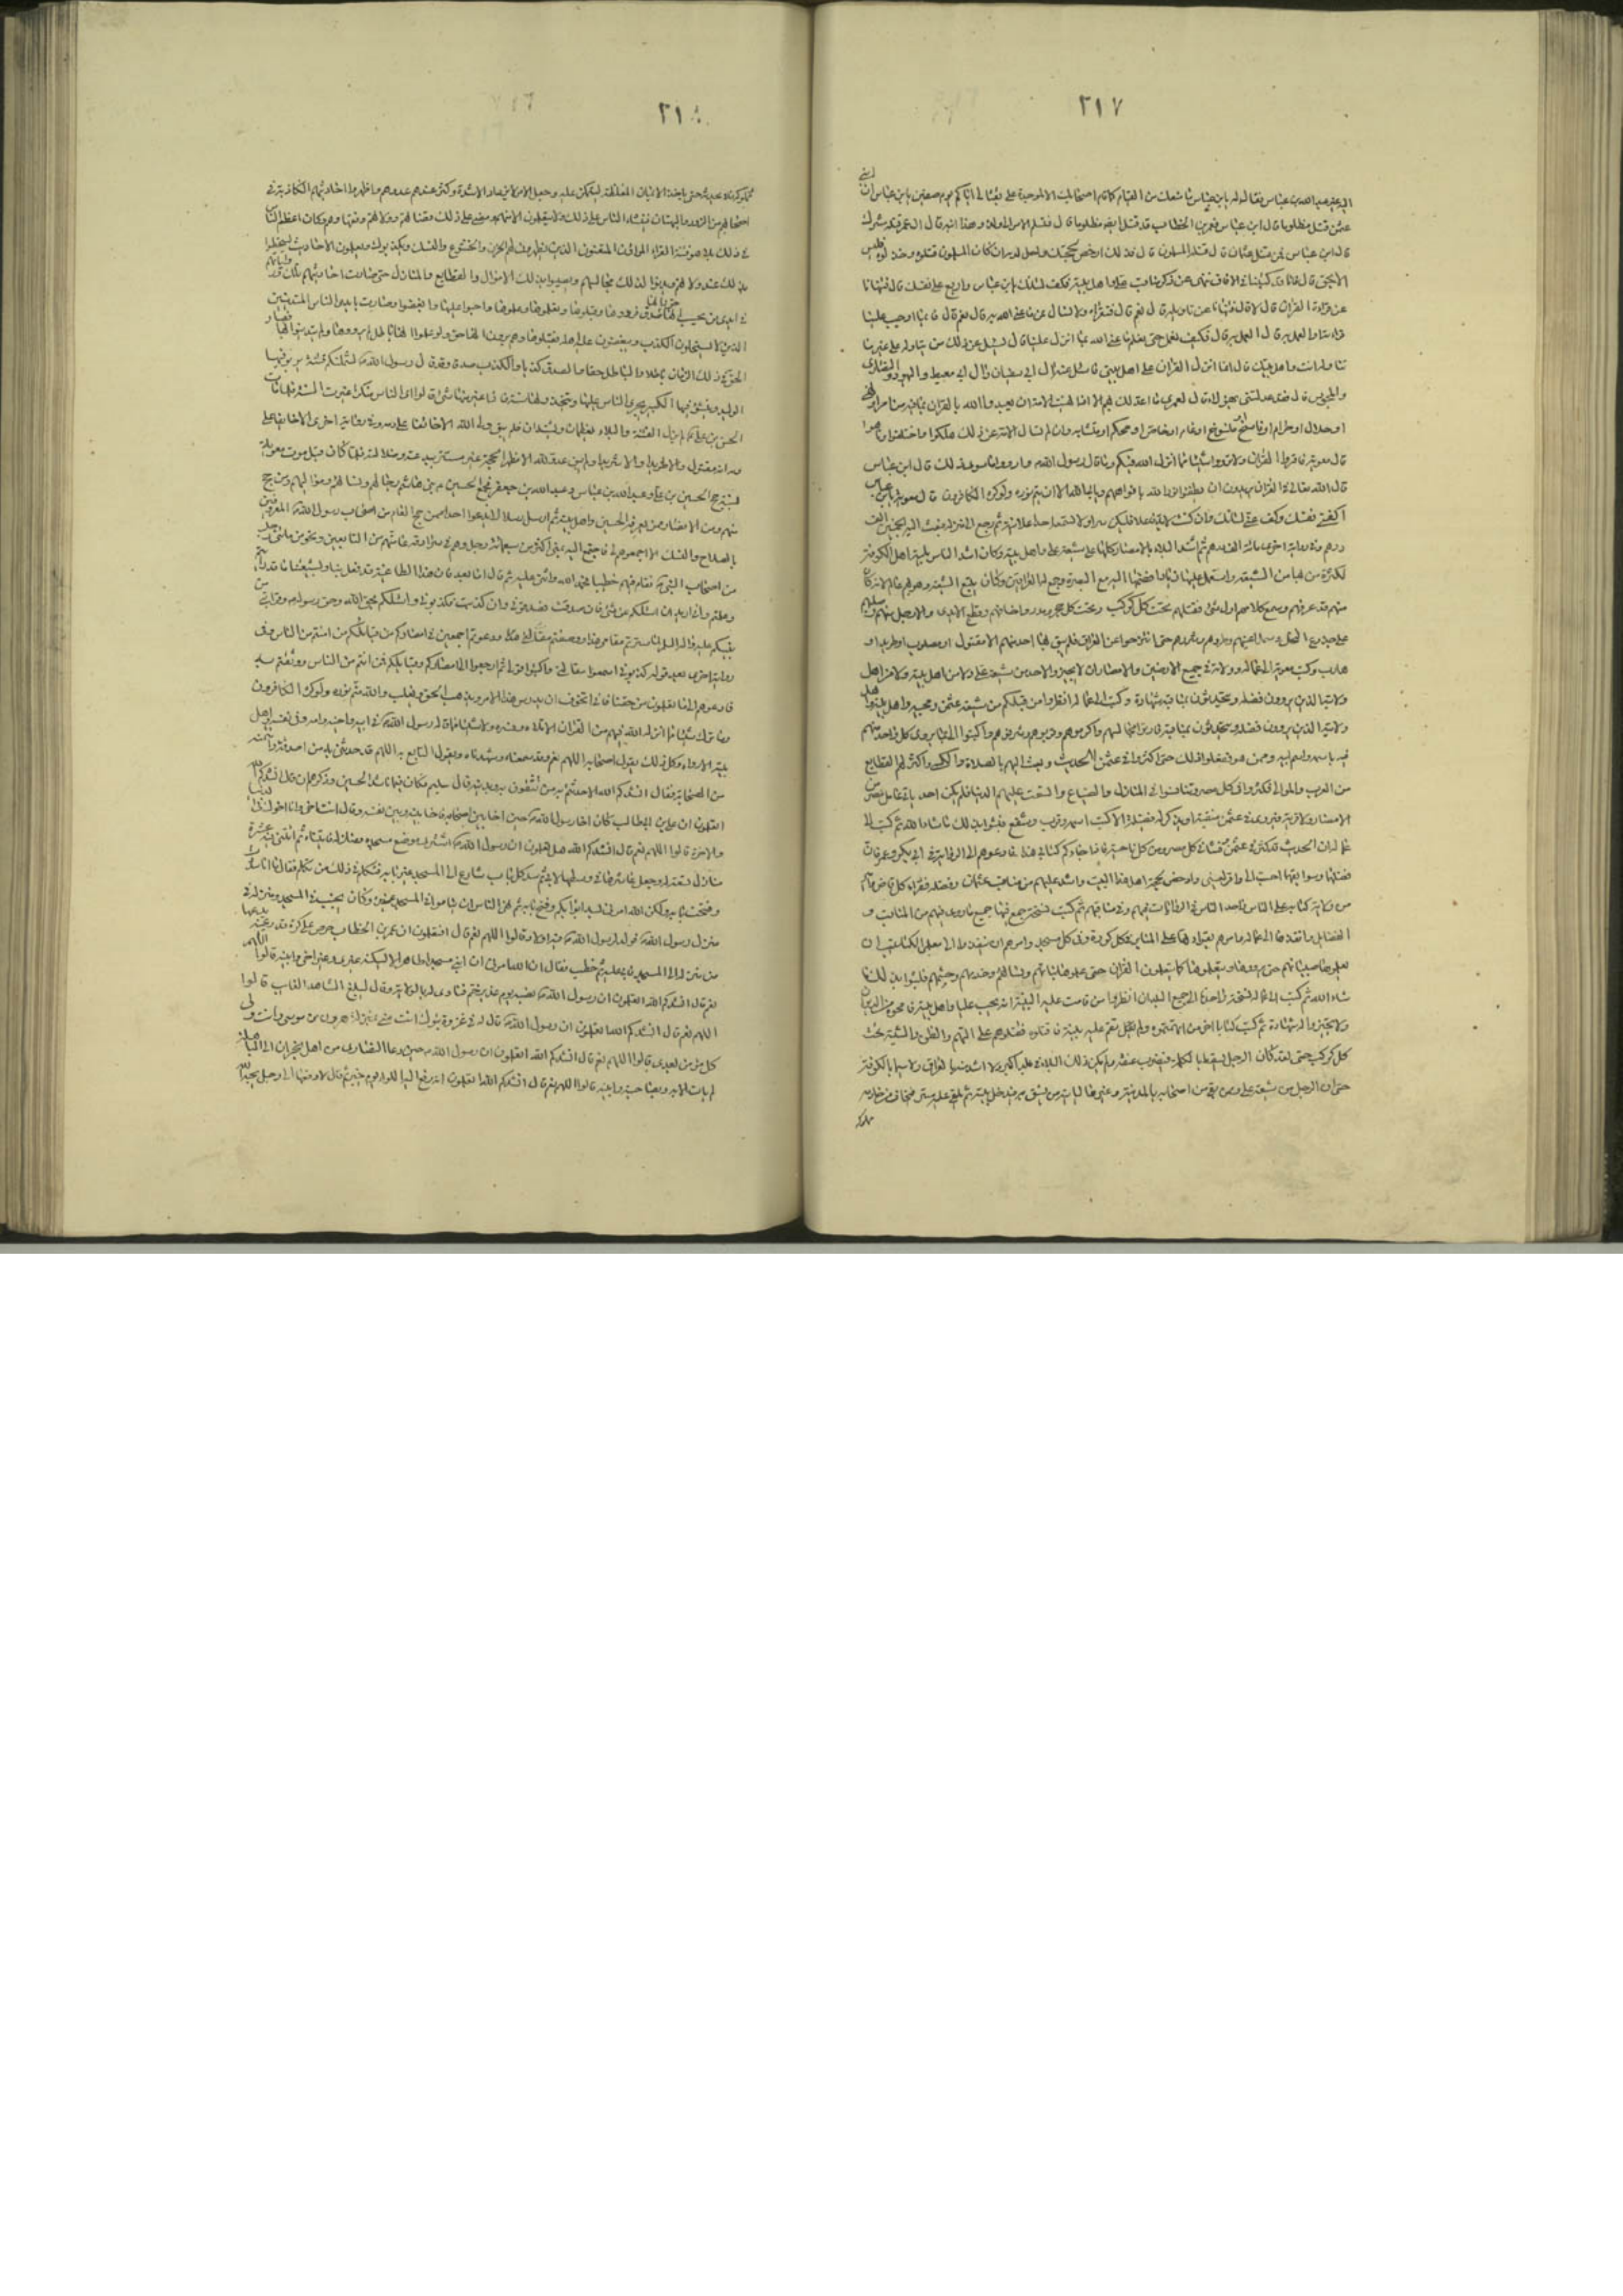 ٢١٧
اليه غير عبد الله بن عباس فقال له يا بن عباس ما منعك من القيام كما قام اصحابك الا لموجدة على بقتالى اياكم يوم صفين يا بن عباس ان ابن عمى
عثمن قتل مظلوما قال ابن عباس فعمر بن الخطاب قد قتل ايضا مظلوما قال فسلم الامر الى ولده وهذا ابنه قال ان عمر قتله مشرك
قال ابن عباس فمن قتل عثمان قال قتله المسلمون قال فذلك ادحض لحجتك واحل لدمه ان كان المسلمون قتلوه وخذلوه فليس
الا بحق قال فانا قد كتبنا فى الافاق ننهى عن ذكر مناقب على واهل بيته فكف لسانك يابن عباس واربع على نفسك قال فتنهانا
عن قراءة القرآن قال لا قال فتنهانا عن تاويله قال نعم قال فنقرأه ولا نسأل عن ما عنى الله به قال نعم قال فايما اوجب علينا
قرائته او العمل به قال العمل به قال فكيف نعمل حتى نعلم ما عنى الله بما انزل علينا قال سل عن ذلك من يتاوله على غير ما
تتأوله انت واهل بيتك قال انما انزل القرآن على اهل بيتى فاسئل عنه آل ابى سفيان وآل ابى معيط واليهود والنصارى
والمجوس قال فقد عدلتنى بهم قال لعمرى ما اعدلك بهم الا اذا نهيت الامة ان يعبدوا الله بالقرآن وبما فيه من امر او نهى
او حلال او حرام او ناسخ او منسوخ او عام او خاص او محكم او متشابه وان لم تسال الامة عن ذلك هلكوا واختلفوا وتاهوا
قال معوية فاقرؤا القرآن ولا ترووا شيئا مما انزل الله فيكم وما قال رسول الله وارووا ما سوى ذلك قال ابن عباس
قال الله تعالى فى القرآن يريدون ان يطفئوا نور الله بافواههم ويابى الله الا ان يتم نوره ولو كره الكافرون قال معوية يابن عباس
اكفنى نفسك وكف عنى لسانك وان كنت لا بد فاعلا فليكن سرا ولا تسمعه احدا علانية ثم رجع الى منزله فبعث اليه بخمسين الف
درهم وفى رواية اخرى مائة الف درهم ثم اشتد البلاء بالامصار كلها على شيعة على واهل بيته وكان اشد الناس بلية اهل الكوفة
لكثرة من بها من الشيعة واستعمل عليها زيادا ضمها اليه مع البصرة وجمع له العراقين وكان يتتبع الشيعة وهو بهم عالم لانه كان
منهم قد عرفهم وسمع كلامهم اول شئ فقتلهم تحت كل كوكب وتحت كل حجر ومدر واخافهم وقطع الايدى والارجل منهم وصلبهم
على جذوع النخل وسمل اعينهم وطردهم وشردهم حتى انتزحوا عن العراق فلم يبق بها احد منهم الا مقتول او مصلوب او طريد او
هارب وكتب معوية الى عماله وولاته فى جميع الارضين والامصار ان لا يجيزوا لاحد من شيعة على ولا من اهل بيته ولا من اهل
ولايته الذين يروون فضله ويتحدثون بمناقبه شهادة وكتب الى عماله انظروا من قبلكم من شيعة عثمن ومحبيه واهل بيته واهل
ولايته الذين يروون فضله ويتحدثون بمناقبه فادنوا مجالسهم واكرموهم وقربوهم وشرفوهم واكتبوا الى بما يروى كل واحد منهم
فيه باسمه واسم ابيه وممن هو ففعلوا ذلك حتى اكثروا فى عثمن الحديث وبعث اليهم بالصلات والكسى واكثر لهم القطايع
من العرب والموالى فكثروا فى كل مصر وتنافسوا فى المنازل والضياع واتسعت عليهم الدنيا فلم يكن احد ياتى عامل مصر من
الامصار ولا قرية فيروى فى عثمن منقبة او يذكر له فضيلة الا كتب اسمه وقرب وشفع فلبثوا بذلك ما شاء الله ثم كتب الى
عماله ان الحديث قد كثر فى عثمن وفشا فى كل مصر ومن كل ناحية فاذا جاءكم كتابى هذا فادعوهم الى الرواية فى ابى بكر وعمر فان
فضلهما وسوابقهما احب الى واقر لعينى وادحض لحجة اهل هذا البيت واشد عليهم من مناقب عثمان وفضله فقرأ كل قاض وامير
من ولاته كتابه على الناس واخذ الناس فى الروايات فيهم وفى مناقبهم ثم كتب نسخة جمع فيها جميع ما روى فيهم من المناقب و
الفضايل وانفذها الى عماله وامرهم بقراءتها على المنابر فى كل كورة وفى كل مسجد وامرهم ان ينفذوا الى معلمى الكتاتيب ان
يعلموها صبيانهم حتى يرووها ويتعلموها كما يتعلمون القرآن حتى علموها بناتهم ونسائهم وخدمهم وحشمهم فلبثوا بذلك ما
شاء الله ثم كتب الى عماله نسخة واحدة الى جميع البلدان انظروا من قامت عليه البينة انه يحب عليا واهل بيته فامحوه من الديوان
ولا تجيزوا له شهادة ثم كتب كتابا اخر من اتهمتموه ولم تقم عليه بينة فاقتلوه فقتلوهم على التهم والظن والشبه تحت
كل كوكب حتى لقد كان الرجل يسقط بالكلمة فيضرب عنقه ولم يكن ذلك البلاء فى بلد اكبر ولا اشد منه بالعراق ولا سيما بالكوفة
حتى ان الرجل من شيعة على وممن بقى من اصحابه بالمدينة وغيرها لياتيه من يثق به فيدخل بيته ثم يلقى عليه ستره فيخاف من خادمه
مملوكه
٢١
مملوكه فلا يحدثه حتى ياخذ الايمان المغلظة ليتمكن عليه وجعل الامر لا يزداد الا شدة وكثر عندهم عدوهم واظهروا احاديثهم الكاذبة فى
اصحابهم من الزور والبهتان فنشأ الناس على ذلك ولا يتعلمون الا منهم ومضى على ذلك قضاتهم وولاتهم وفقهاؤهم وكان اعظم الناس
فى ذلك بلاء وفتنة القراء المراؤن المتصنعون الذين يظهرون لهم الحزن والخشوع والنسك ويكذبون ويعلمون الاحاديث ليحظوا
بذلك عند ولاتهم ويدنوا لذلك مجالسهم ويصيبوا بذلك الاموال والقطايع والمنازل حتى صارت احاديثهم تلك ورواياتهم
فى ايدى من يحسب انها حق وانها صدق فرووها وقبلوها وتعلموها وعلموها واحبوا عليها وابغضوا وصارت بايدى الناس المتدينين
الذين لا يستحلون الكذب ويبغضون عليه اهله فقبلوها وهم يرون انها حق ولو علموا انها باطل لم يرووها ولم يتدينوا بها فصار
الحق فى ذلك الزمان باطلا والباطل حقا والصدق كذبا والكذب صدقا وقد قال رسول الله لتشملنكم فتنة يربو فيها
الوليد وينشؤ فيها الكبير يجرى الناس عليها ويتخذونها سنة فاذا غير منها شئ قالوا اتى الناس منكرا غيرت السنة فلما مات
الحسن بن على لم يزل الفتنة والبلاء يعظمان ويشتدان فلم يبق ولى الله الا خائفا على دمه وفى رواية اخرى الا خائفا على
دمه انه مقتول والا طريدا والا شريدا ولم يبق عدو لله الا مظهرا لحجته غير مستتر ببدعته وضلالته فلما كان قبل موت معوية
بسنة حج الحسين بن على وعبد الله بن عباس وعبد الله بن جعفر فجمع الحسين بنى هاشم رجالهم ونسائهم ومواليهم ومن حج
منهم ومن الانصار ممن يعرفه الحسين واهل بيته ثم ارسل رسلا لا تدعوا احدا ممن حج العام من اصحاب رسول الله المعروفين
بالصلاح والنسك الا اجمعوهم لى فاجتمع اليه بمنى اكثر من سبعمائة رجل وهم فى سرادقه عامتهم من التابعين ونحو من مائتى رجل
من اصحاب النبى فقام فيهم خطيبا فحمد الله واثنى عليه ثم قال اما بعد فان هذا الطاغية قد فعل بنا وبشيعتنا ما قد رأيتم
وعلمتم وانى اريد ان اسئلكم عن شئ فان صدقت فصدقونى وان كذبت فكذبونى واسئلكم بحق الله وحق رسوله وقرابتى من
نبيكم لما سترتم مقامى هذا ووصفتم مقالتى هذه ودعوتم اجمعين فى امصاركم من قبائلكم من امنتم من الناس وفى
رواية اخرى بعد قوله فكذبونى اسمعوا مقالتى واكتبوا قولى ثم ارجعوا الى امصاركم وقبايلكم فمن امنتم من الناس ووثقتم به
فادعوهم الى ما تعلمون من حقنا فانى اتخوف ان يدرس هذا الامر ويذهب الحق ويغلب والله متم نوره ولو كره الكافرون
وما ترك شيئا مما انزل الله فيهم من القرآن الا تلاه وفسره ولا شيئا مما قاله رسول الله فى ابيه واخيه وامه وفى نفسه واهل
بيته الا رواه وكل ذلك يقول اصحابه اللهم نعم وقد سمعنا وشهدنا ويقول التابعى اللهم قد حدثنى به من اصدقه وآتمنه
من الصحابة فقال انشدكم الله الا حدثتم به من تثقون به وبدينه قال سليم فكان فيما ناشدهم الحسين وذكرهم ان قال انشدكم الله
اتعلمون ان على بن ابيطالب كان اخا رسول الله حين اخا بين اصحابه فاخا بينه وبين نفسه وقال انت اخى وانا اخوك فى الدنيا
والاخرة قالوا اللهم نعم قال انشدكم الله هل تعلمون ان رسول الله اشترى موضع مسجده ومنازله فابتناه ثم ابتنى فيه عشرة
منازل تسعة له وجعل عاشرها فى وسطها لابى ثم سد كل باب شارع الى المسجد غير بابه فتكلم فى ذلك من تكلم فقال ما انا سددت
وفتحت بابه ولكن الله امرنى بسد ابوابكم وفتح بابه ثم نهى الناس ان يناموا فى المسجد غيره وكان يجنب فى المسجد ومنزله فى
منزل رسول الله فولد لرسول الله وله فيه اولاد قالوا اللهم نعم قال افتعلمون ان عمر بن الخطاب حرص على كوة قدر عينه يدعها
من منزله الى المسجد فابى عليه ثم خطب فقال ان الله امرنى ان ابنى مسجدا طاهرا لا يسكنه غيرى وغير اخى وابنيه قالوا اللهم
نعم قال انشدكم الله اتعلمون ان رسول الله نصبه يوم غدير خم فنادى له بالولاية وقال ليبلغ الشاهد الغايب قالوا
اللهم نعم قال انشدكم الله اتعلمون ان رسول الله قال له فى غزوة تبوك انت منى بمنزلة هرون من موسى وانت ولى
كل مؤمن بعدى قالوا اللهم نعم قال انشدكم الله اتعلمون ان رسول الله حين دعا النصارى من اهل نجران الى المباهلة
لم يات الا به وبصاحبته وابنيه قالوا اللهم نعم قال انشدكم الله اتعلمون انه دفع اليه اللواء يوم خيبر ثم قال لادفعها الى رجل يحبه الله